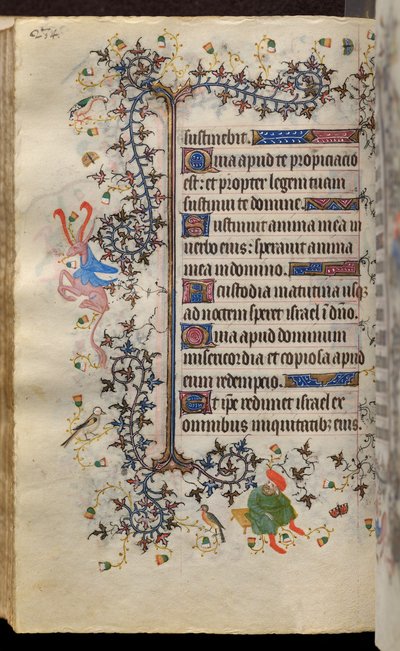 254.
sustinebit.
Quia apud te propiciacio
est: et propter legem tuam
sustinui te domine.
Sustinuit anima mea in
verbo eius: speravit anima
mea in domino.
A custodia matutina usq3
ad noctem speret israel ī dño.
Quia apud dominum
misericordia et copiosa apud
eum redempcio.
Et ip̄e redimet israel ex
omnibus iniquitatib3 eius.